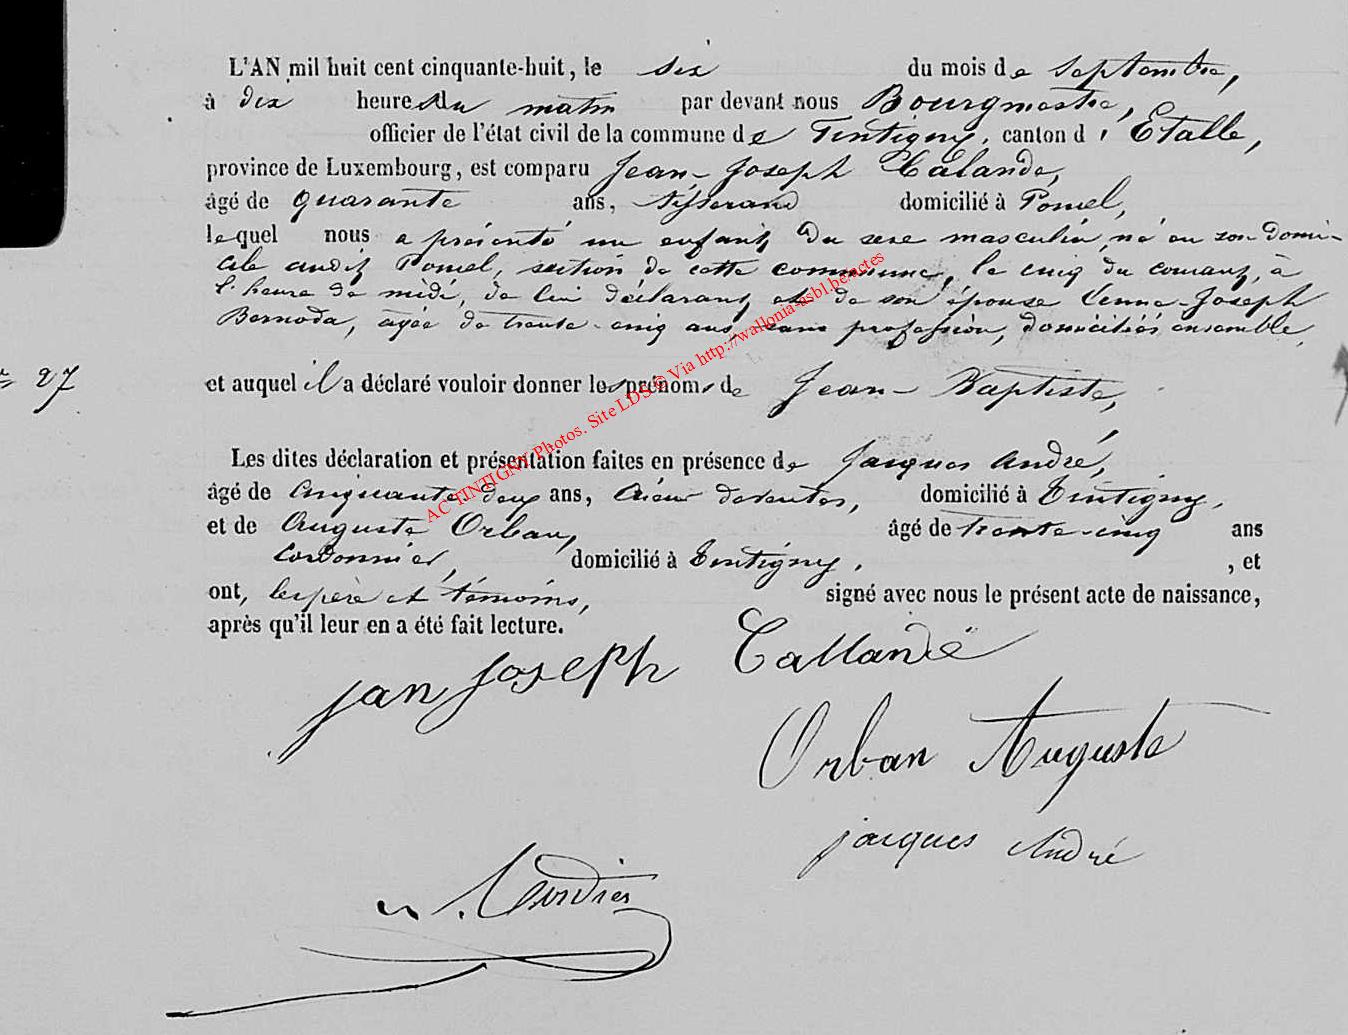 L'AN mil huit cent cinquante-huit, le six du mois de Septembre,
à dix heures du matin par devant nous Bourgmestre,
officier de l'état civil de la commune de Tintigny, canton d'Etalle,
province de Luxembourg, est comparu Jean-Joseph Calande,
âgé de quarante ans, tisserand domicilié à Poncel,
lequel nous a présenté un enfant du sexe masculin, né en son domi-
cile audit Poncel, section de cette commune, le cinq du courant, à
l'heure de midi, de lui déclarant et de son épouse Joseph
âgée de trente-cinq ans, sans profession, domiciliés ensemble,
27 et auquel il a déclaré vouloir donner les prénoms de Jean-Baptiste,
Les dites déclaration et présentation faites en présence de Jacques André,
âgé de cinquante deux ans, domicilié à Tintigny,
et de Auguste Orban, âgé de trente-cinq ans
cordonnier, domicilié à Tintigny, , et
ont, les père et témoins, signé avec nous le présent acte de naissance,
après qu'il leur en a été fait lecture.
jan joseph Callande
Orban Auguste
jacques André
AC TINTIGNY Photos. Site LDS © Via http://wallonia-asbl.be/actes